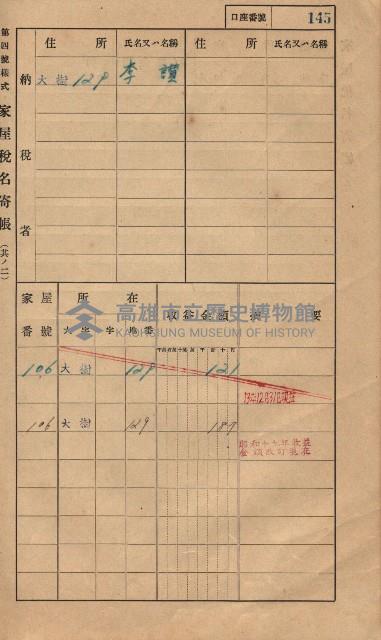 口座番號 145
第四號樣式 家屋稅名寄帳(其ノ二)
納稅者
住所 氏名又ハ名稱 住所 氏名又ハ名稱
大樹 129 李讚
家屋番號 所在 收益金額 摘要
大字 字 地番
106 大樹 129 121
13年12月31日現在
106 大樹 129 189
昭和十七年收益
金額改訂現在
高雄市立歷史博物館
KAOHSIUNG MUSEUM OF HISTORY